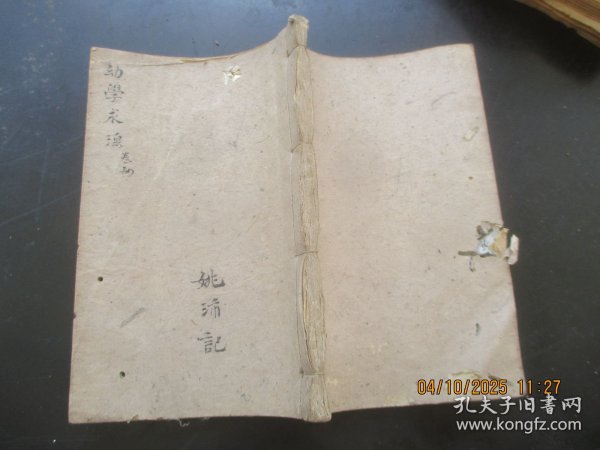 幼學求源
卷初
姚沛記
04/10/2025 11:27
孔夫子旧书网
www.kongfz.com